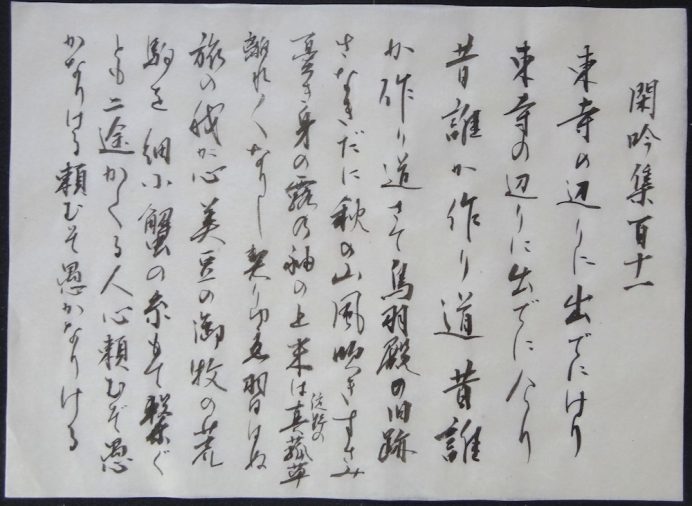 閑吟集百十一
東寺の辺りに出でにけり
東寺の辺りに出でにけり
昔誰か作り道 昔誰
か作り道 さて鳥羽殿の旧跡
さなきだに秋の山風吹きすさみ
憂き身の露の袖の上 末は淀野の真菰草
離れ〳〵なりし契りゆゑ 習はぬ
旅の我が心 美豆の御牧の荒
駒を 細小蟹の糸もて繋ぐ
とも 二途かくる人心 頼むぞ愚
かなりける 頼むぞ愚かなりける